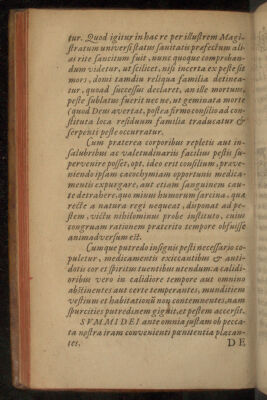 tur. Quod igitur in hac re per illustrem Magi-
stratum universi status sanitatis præfectum ali-
as rite sancitum fuit, nunc quoque comproban-
dum videtur, ut scilicet, nisi incerta ex peste sit
mors, domi tamdiu reliqua familia detinea-
tur, quoad successus declaret, an ille mortuus,
peste sublatus fuerit nec ne, ut geminata morte
(quod Deus avertat, postea firmo consilio ad con-
stituta loca residuum familia traducatur &
serpenti peste occurratur.
Cum præterea corporibus repletis aut in-
salubribus ac valetudinariis facilius pestis su-
pervenire posset, opt. ideo erit consilium, præve-
niendo ipsam cacochymiam opportunis medica-
mentis expurgare, aut etiam sanguinem cau-
te detrahere, quo minus humorum sarcina, qua
recte a natura regi nequeat, disponat ad pe-
stem, victu nihilominus probe instituto, cuius
congruam rationem præterito tempore obfuisse
animadversum est.
Cumque putredo insignis pesti necessario co-
puletur, medicamentis exiccantibus & anti-
dotis cor et spiritus tuentibus utendum: a calidi-
oribus vero in calidiore tempore aut omnino
abstinentes aut certe temperantes, munditiem
vestium et habitationū noq contemnentes, nam
spurcities putredinem gignit, et pestem accersit.
SVMMI DEI ante omnia justam ob pecca-
ta nostra iram convenienti pœnitentia placan-
tes.
DE